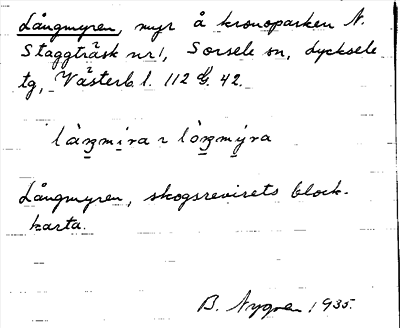 Långmyren, myr å kronoparken N.
Staggträsk nr 1, Sorsele sn, Lycksele
tg, Västerb. l. 112 G. 42.
làŋmira ~ lòŋmýra
Långmyren, skogsrevirets block-
karta.
B. Nygren 1935.